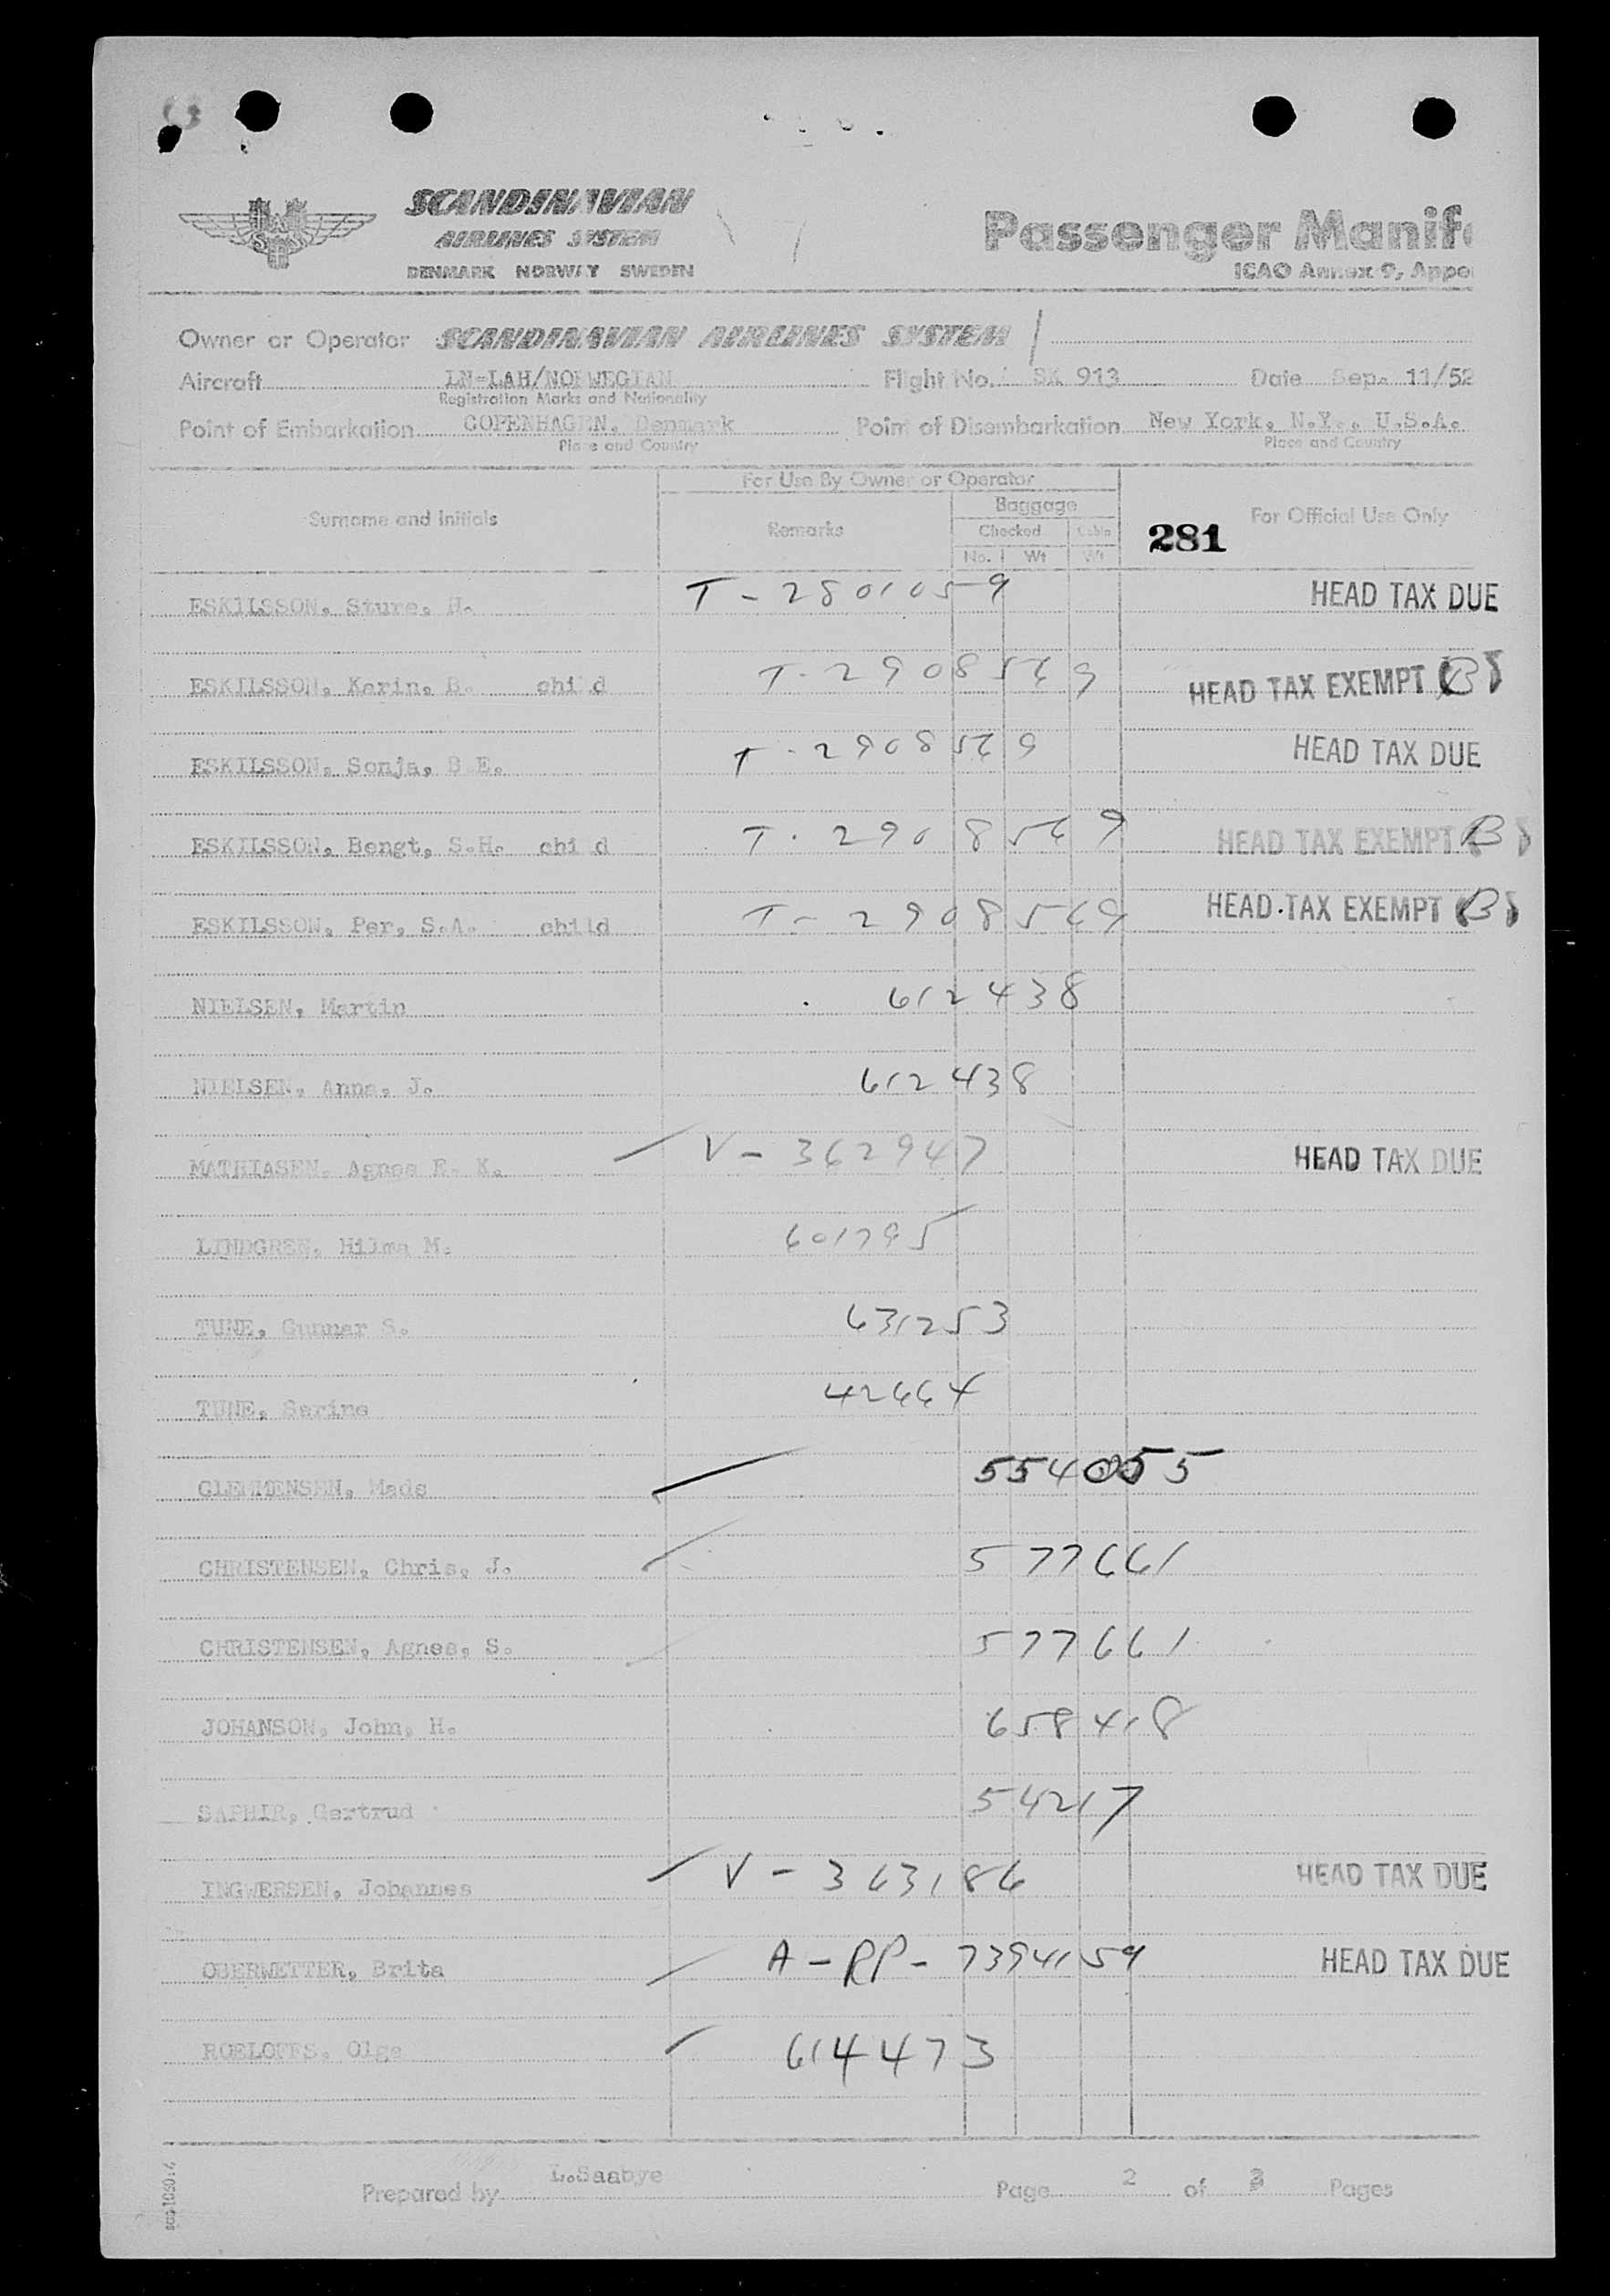 SCANDINAVIAN
AIRLINES SYSTEM
DENMARK NORWAY SWEDEN
Passenger Manif
ICAO Annex 9, Appe
Owner or Operator SCANDINAVIAN AIRLINES SYSTEM
Aircraft LN-LAH/NORWEGIAN Flight No. SK 913 Date Sep. 11/52
Registration Marks and Nationality
Point of Embarkation COPENHAGEN, Denmark Point of Disembarkation New York, N.Y., U.S.A.
Place and Country Place and Country
For Use By Owner or Operator
Surname and Initials Remarks Baggage For Official Use Only
Checked Cabin
No. Wt Wt
281
ESKILSSON, Sture, H. T-2801059 HEAD TAX DUE
ESKILSSON, Karin, B. child T-2908569 HEAD TAX EXEMPT (B)
ESKILSSON, Sonja, B.E. T-2908569 HEAD TAX DUE
ESKILSSON, Bengt, S.H. child T-2908569 HEAD TAX EXEMPT (B)
ESKILSSON, Per, S.A. child T-2908569 HEAD TAX EXEMPT (B)
NIELSEN, Martin 612438
NIELSEN, Anna, J. 612438
MATHIASEN, Agnes E. K. V-362947 HEAD TAX DUE
LINDGREN, Hilma M. 601795
TUNE, Gunnar S. 631253
TUNE, Serine 42664
CLEMMENSEN, Mads 554055
CHRISTENSEN, Chris, J. 577661
CHRISTENSEN, Agnes, S. 577661
JOHANSON, John, H. 658418
SAPHIR, Gertrud 54217
INGWERSEN, Johannes V-363186 HEAD TAX DUE
OBERWETTER, Brita A-RP-7394159 HEAD TAX DUE
ROELOFFS, Olga 614473
Prepared by L.Saabye Page 2 of 3 Pages